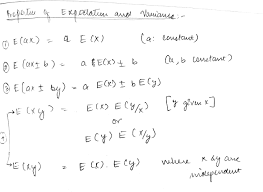 Properties of Expectation and Variance:-
① E(ax) = a E(x) (a: constant)
② E(ax ± b) = a E(x) ± b (a, b constant)
③ E(ax ± by) = a E(x) ± b E(y)
E(xy) = E(x) E(y/x) [y given x]
or
E(y) E(x/y)
E(xy) = E(x). E(y) where x & y are
independent